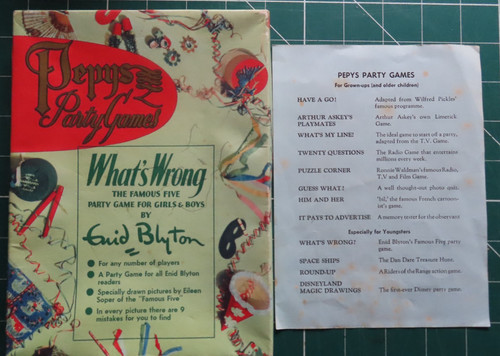 Pepys
Party Games
What's Wrong
THE FAMOUS FIVE
PARTY GAME FOR GIRLS & BOYS
BY
Enid Blyton
• For any number of players
• A Party Game for all Enid Blyton
readers
• Specially drawn pictures by Eileen
Soper of the "Famous Five"
• In every picture there are 9
mistakes for you to find
PEPYS PARTY GAMES
For Grown-ups (and older children)
HAVE A GO! Adapted from Wilfred Pickles'
famous programme.
ARTHUR ASKEY'S Arthur Askey's own Limerick
PLAYMATES Game.
WHAT'S MY LINE! The ideal game to start off a party,
adapted from the T.V. Game.
TWENTY QUESTIONS The Radio Game that entertains
millions every week.
PUZZLE CORNER Ronnie Waldman's famous Radio,
T.V and Film Game.
GUESS WHAT! A well thought-out photo quiz.
HIM AND HER the famous French cartoon-
ist's game.
IT PAYS TO ADVERTISE A memory game for the observant
Especially for Youngsters
WHAT'S WRONG? Enid Blyton's Famous Five party
game.
SPACE SHIPS The Dan Dare Treasure Hunt.
ROUND-UP A Riders of the Range action game.
DISNEYLAND
MAGIC DRAWINGS The first-ever Disney party game.